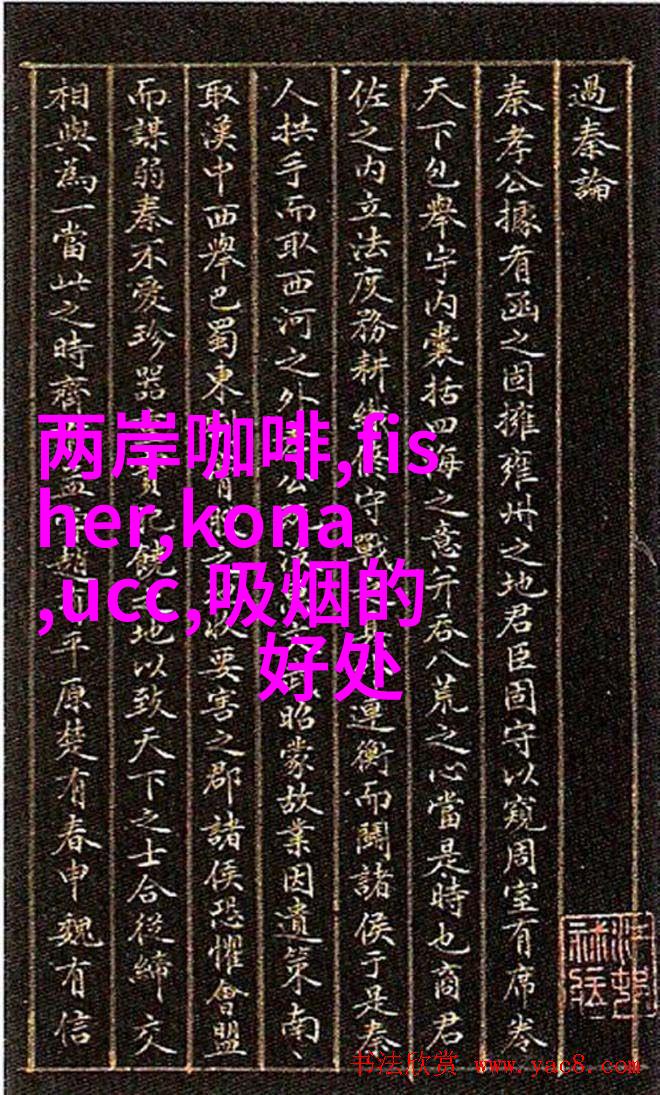 過秦論
秦孝公據肴函之固擁雍州之地君臣固守以窺周室有席卷
天下包舉宇内囊括四海之意并吞八荒之心當是時也商君
佐之内立法度務耕織修守戰連衡而鬭諸侯于是秦
人拱手而取西河之外昭蒙故業因遺策南、
取漢中西舉巴蜀東收要害之郡諸侯恐懼會盟
而謀弱秦不愛珍器饒地以致天下之士合從締交
相與為一當此之時齊平原楚有春申魏有信
两岸咖啡,fis
her,kona
,ucc,吸烟的
好处
书法欣赏 www.yac8.com